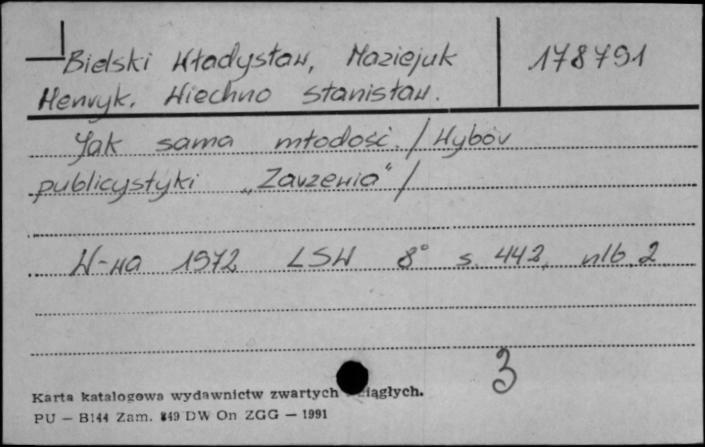 Bielski Władysław, Maziejuk
178791
Henryk. Wiechno Stanisław.
Jak sama młodość. / Wybór
publicystyki „Zarzewia" /
W-wa 1972 LSW 8° s. 442, nlb. 2.
3
Karta katalogowa wydawnictw zwartych ciągłych.
PU — B144 Zam. 849 DW On ZGG — 1991